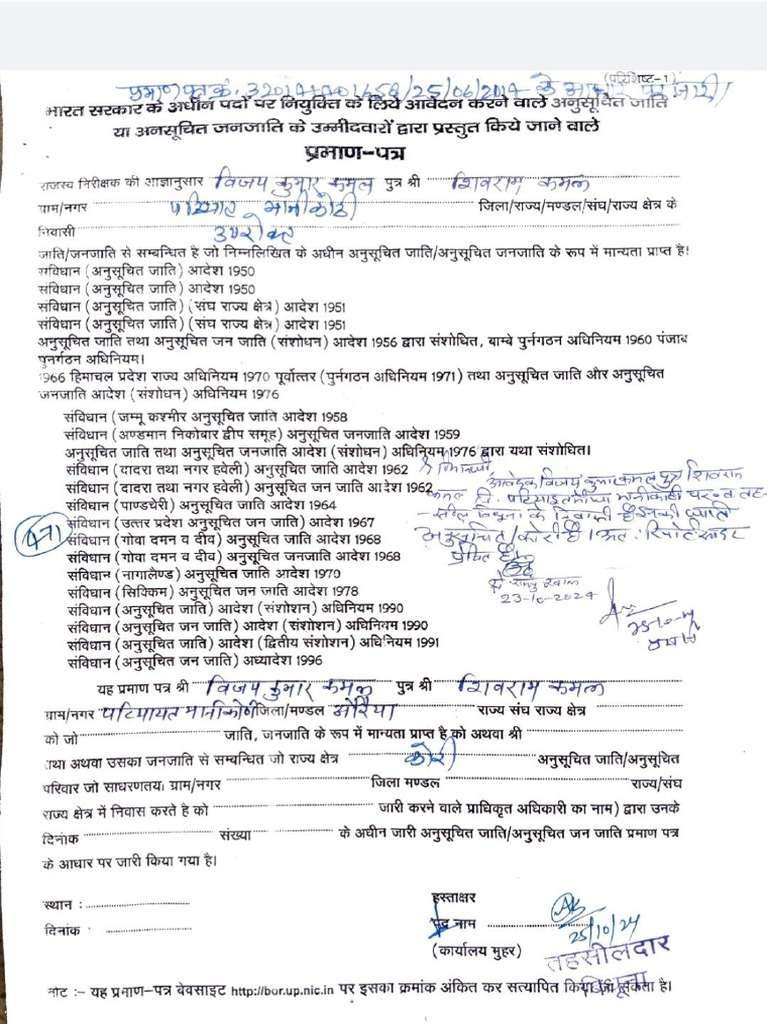 (परिशिष्ट-1)
प्रमाण पत्र क्र. 25/06/2014 के आधार पर जारी
भारत सरकार के अधीन पदों पर नियुक्ति के लिये आवेदन करने वाले अनुसूचित जाति
या अनसूचित जनजाति के उम्मीदवारों द्वारा प्रस्तुत किये जाने वाले
प्रमाण-पत्र
राजस्व निरीक्षक की आज्ञानुसार विजय कुमार कमल पुत्र श्री शिवराम कमल
ग्राम/नगर मानीकोठी जिला/राज्य/मण्डल/संघ/राज्य क्षेत्र के
निवासी उपरोक्त
जाति/जनजाति से सम्बन्धित है जो निम्नलिखित के अधीन अनुसूचित जाति/अनुसूचित जनजाति के रूप में मान्यता प्राप्त है।
संविधान (अनुसूचित जाति) आदेश 1950
संविधान (अनुसूचित जाति) आदेश 1950
संविधान (अनुसूचित जाति) (संघ राज्य क्षेत्र) आदेश 1951
संविधान (अनुसूचित जाति) (संघ राज्य क्षेत्र) आदेश 1951
अनुसूचित जाति तथा अनुसूचित जन जाति (संशोधन) आदेश 1956 द्वारा संशोधित, बाम्बे पुर्नगठन अधिनियम 1960 पंजाब
पुनर्गठन अधिनियम।
1966 हिमाचल प्रदेश राज्य अधिनियम 1970 पूर्वोत्तर (पुर्नगठन अधिनियम 1971) तथा अनुसूचित जाति और अनुसूचित
जनजाति आदेश (संशोधन) अधिनियम 1976
संविधान (जम्मू कश्मीर अनुसूचित जाति आदेश 1958
संविधान (अण्डमान निकोबार द्वीप समूह) अनुसूचित जनजाति आदेश 1959
अनुसूचित जाति तथा अनुसूचित जनजाति आदेश (संशोधन) अधिनियम 1976 द्वारा यथा संशोधित।
संविधान (दादरा तथा नगर हवेली) अनुसूचित जाति आदेश 1962
संविधान (दादरा तथा नगर हवेली) अनुसूचित जन जाति आदेश 1962
संविधान (पाण्डचेरी) अनुसूचित जाति आदेश 1964
संविधान (उत्तर प्रदेश अनुसूचित जन जाति) आदेश 1967
संविधान (गोवा दमन व दीव) अनुसूचित जाति आदेश 1968
संविधान (गोवा दमन व दीव) अनुसूचित जनजाति आदेश 1968
संविधान (नागालैण्ड) अनुसूचित जाति आदेश 1970
संविधान (सिक्किम) अनुसूचित जन जाति आदेश 1978
संविधान (अनुसूचित जाति) आदेश (संशोशन) अधिनियम 1990
संविधान (अनुसूचित जन जाति) आदेश (संशोशन) अधिनियम 1990
संविधान (अनुसूचित जाति) आदेश (द्वितीय संशोशन) अधिनियम 1991
संविधान (अनुसूचित जन जाति) अध्यादेश 1996
श्रीमानजी
आवेदक विजय कुमार कमल पुत्र शिवराम
कमल नि. मानीकोठी तह-
सील बिधूना के निवासी है इनकी जाति
अनुसूचित/कोरी है। अतः रिपोर्ट सादर
प्रेषित है।
23-10-2024
यह प्रमाण पत्र श्री विजय कुमार कमल पुत्र श्री शिवराम कमल
ग्राम/नगर मानीकोठी जिला/मण्डल औरैया राज्य संघ राज्य क्षेत्र
को जो जाति, जनजाति के रूप में मान्यता प्राप्त है को अथवा श्री
तथा अथवा उसका जनजाति से सम्बन्धित जो राज्य क्षेत्र कोरी अनुसूचित जाति/अनुसूचित
परिवार जो साधरणतया ग्राम/नगर जिला मण्डल राज्य/संघ
राज्य क्षेत्र में निवास करते है को जारी करने वाले प्राधिकृत अधिकारी का नाम) द्वारा उनके
दिनांक संख्या के अधीन जारी अनुसूचित जाति/अनुसूचित जन जाति प्रमाण पत्र
के आधार पर जारी किया गया है।
स्थान :
दिनांक :
हस्ताक्षर
पद नाम
25/10/24
(कार्यालय मुहर)
तहसीलदार
बिधूना
नोट :- यह प्रमाण-पत्र बेवसाइट http://bor.up.nic.in पर इसका क्रमांक अंकित कर सत्यापित किया जा सकता है।